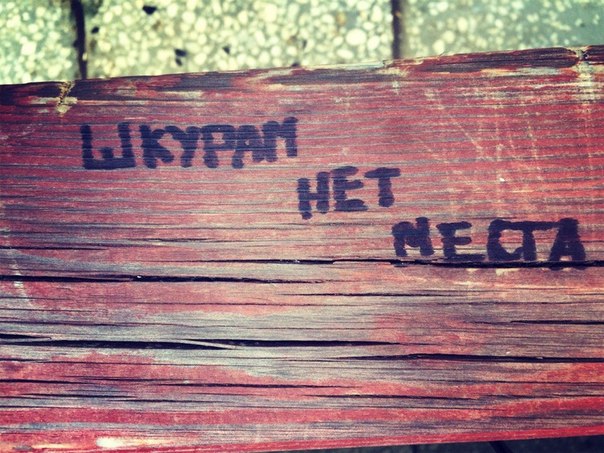 ШКУРАМ
НЕТ
МЕСТА